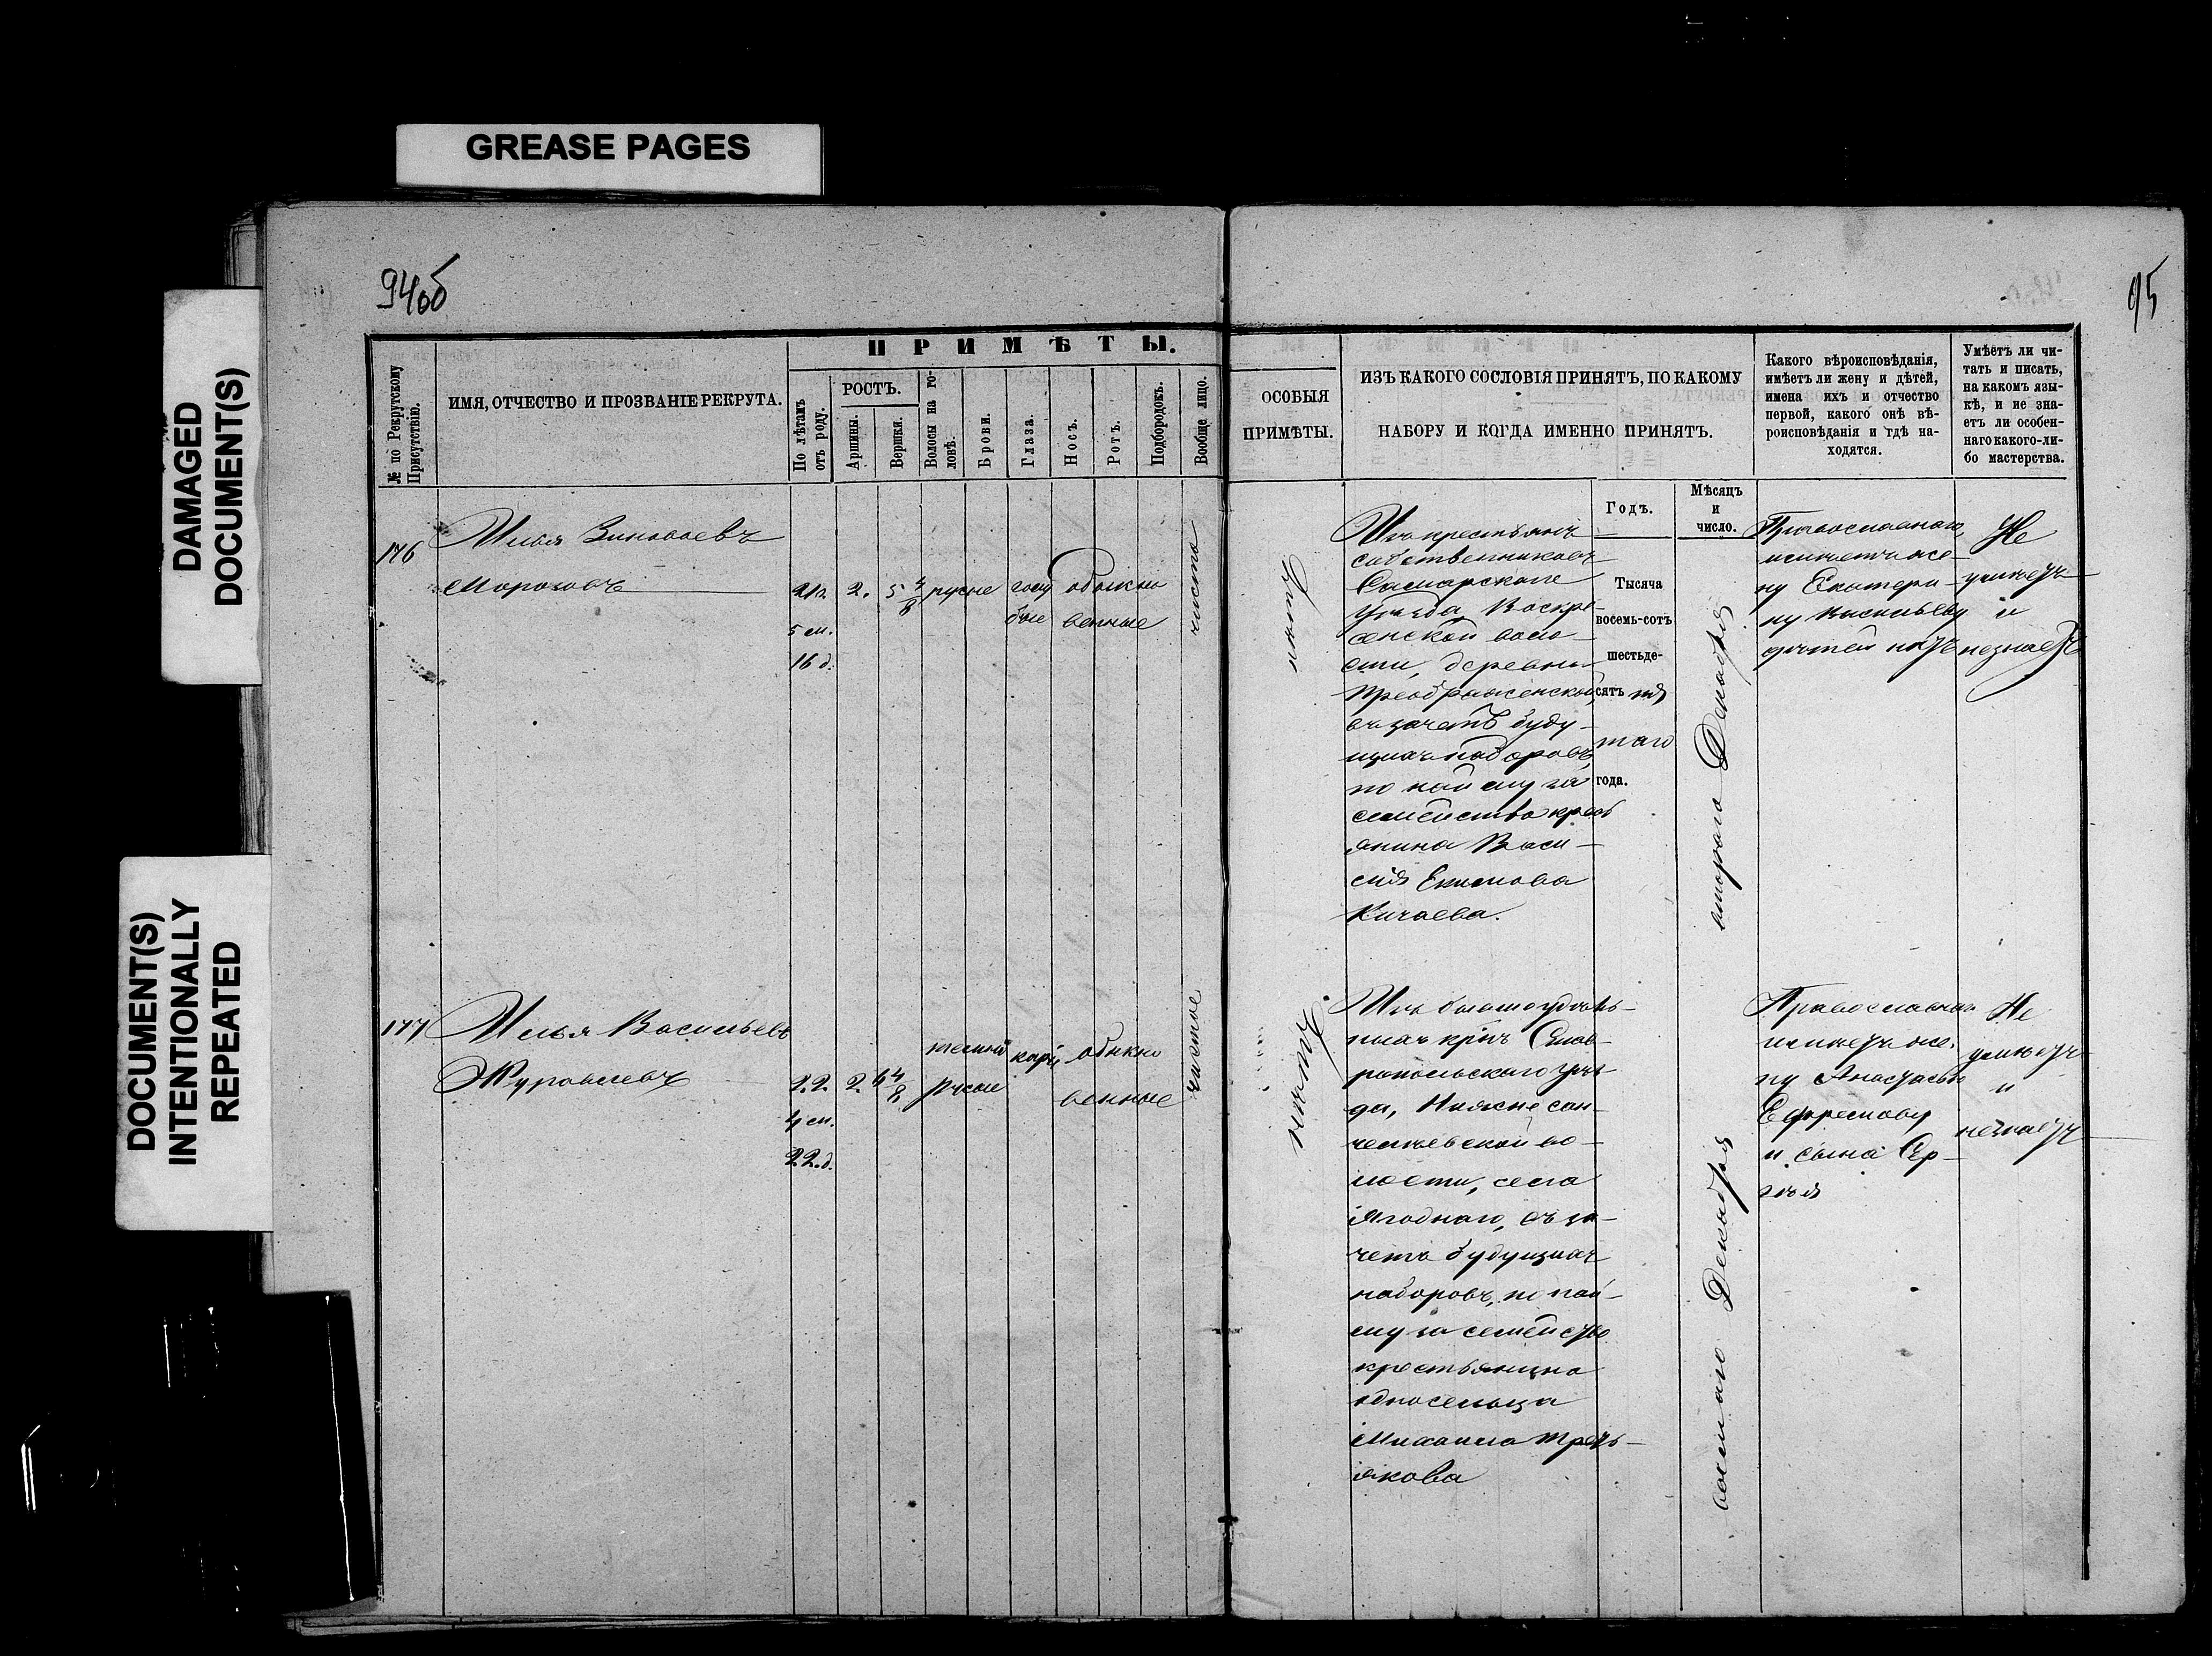 GREASE PAGES
DAMAGED
DOCUMENT(S)
DOCUMENT(S)
INTENTIONALLY
REPEATED
94об
95
№ по Рекрутскому
Присутствію.
ИМЯ, ОТЧЕСТВО И ПРОЗВАНІЕ РЕКРУТА.
ПРИМѢТЫ.
По лѣтамъ
отъ роду.
РОСТЪ.
Аршины.
Вершки.
Волосы на го-
ловѣ.
Брови.
Глаза.
Носъ.
Ротъ.
Подбородокъ.
Вообще лицо.
ОСОБЫЯ
ПРИМѢТЫ.
ИЗЪ КАКОГО СОСЛОВІЯ ПРИНЯТЪ, ПО КАКОМУ
НАБОРУ И КОГДА ИМЕННО ПРИНЯТЪ.
Годъ.
Мѣсяцъ
и
число.
Какого вѣроисповѣданія,
имѣетъ ли жену и дѣтей,
имена ихъ и отчество
первой, какого онѣ вѣ-
роисповѣданія и гдѣ на-
ходятся.
Умѣетъ ли чи-
тать и писать,
на какомъ язы-
кѣ, и не зна-
етъ ли особен-
наго какого-ли-
бо мастерства.
176
Илья Зиновьевъ
Морозовъ
21 г.
5 м.
16 д.
2.
5 4/8
русые
голу
бые
обыкно
венные
чисто
нѣтъ
Изъ крестьянъ
собственниковъ
Самарскаго
уѣзда, Воскре-
сенской воло-
сти, деревни
Преображенской,
въ зачетъ буду-
щихъ наборовъ,
по найму за
семейство крест
янина Васи-
лія Екимова
Кичаева.
Тысяча
восемь-сотъ
шестьде-
сятъ пя
таго
года.
втораго Декабря
Православнаго,
имѣетъ же-
ну Екатери-
ну Васильеву
дѣтей нѣтъ
Не
умѣетъ
и
незнаетъ
177
Илья Васильевъ
Журавлевъ
22.
4 м.
22. д.
2
6 4/8
темно
русые
каріе
обыкно
венные
чистое
нѣтъ
Изъ бывшихъ удѣль-
ныхъ крнъ Став-
ропольскаго уѣз-
да, Нижнесан-
челѣевской во-
лости, села
Ягоднаго, въ за-
четъ будущихъ
наборовъ, по най-
му за семейство
крестьянина
односельца
Михаила Треть-
якова
восьмаго Декабря
Православнаго
имѣетъ же-
ну Анастасью
Ефремову
и сына Сер-
гѣя
Не
умѣетъ
и
незнаетъ